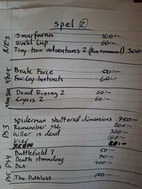 spel
Smurfarna 100:-
World Cup 60:-
Tiny toon adventures 2 300:-
Brute Force 50:-
Far Cry Instincts 60:-
Dead Rising 2 60:-
Crysis 2 60:-
PS3
Spiderman shattered dimensions 350:-
Remember Me 200:-
killer is dead 200:-
PS4
Battlefield 1 50:-
Death stranding
The Pathless 150:-